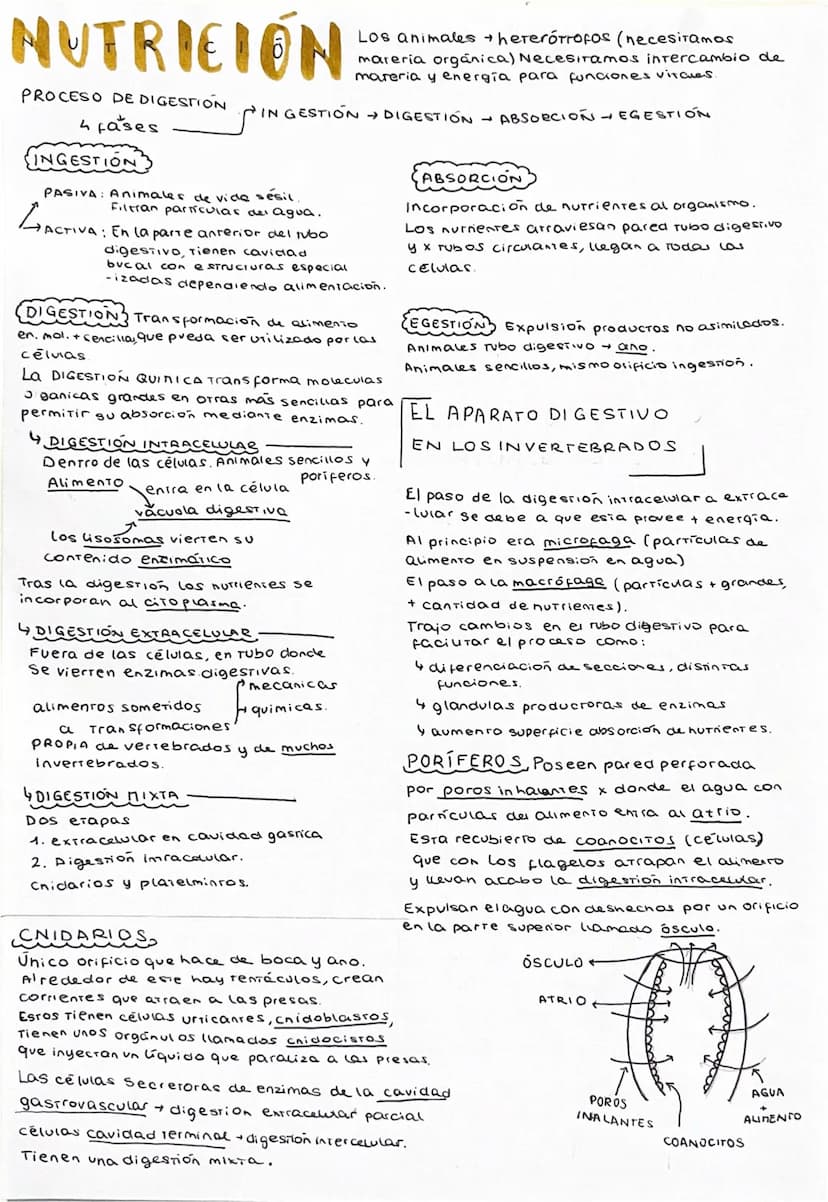 NUTRICIÓN
NUTRICIÓN
Los animales → heterótrofos (necesitamos
materia orgánica) Necesitamos intercambio de
materia y energía para funciones vitales.
PROCESO DE DIGESTIÓN
4 fases
INGESTIÓN → DIGESTIÓN → ABSORCIÓN → EGESTIÓN
INGESTIÓN
PASIVA: Animales de vida sésil.
Filtran partículas del agua.
→ ACTIVA: En la parte anterior del tubo
digestivo, tienen cavidad
bucal con estructuras especial
-izadas dependiendo alimentación.
DIGESTIÓN Transformación de alimento
en mol. + sencillas, que pueda ser utilizado por las
células
La DIGESTIÓN QUIMICA transforma moleculas
organicas grandes en otras más sencillas para
permitir su absorción mediante enzimas.
↳ DIGESTIÓN INTRACELULAR
Dentro de las células. Animales sencillos y
poríferos.
Alimento
entra en la célula
vacuola digestiva
los lisosomas vierten su
contenido enzimático
Tras la digestión los nutrientes se
incorporan al citoplasma.
↳ DIGESTIÓN EXTRACELULAR
Fuera de las células, en tubo donde
se vierten enzimas digestivas.
mecánicas
alimentos sometidos
químicas.
a transformaciones
PROPIA de vertebrados y de muchos
invertebrados.
↳ DIGESTIÓN MIXTA
Dos etapas
1. extracelular en cavidad gastrica
2. Digestión intracelular.
Cnidarios y platelmintos.
CNIDARIOS
Único orificio que hace de boca y ano.
Alrededor de este hay tentáculos, crean
corrientes que atraen a las presas.
Estos tienen células urticantes, cnidoblastos,
tienen unos orgánulos llamados cnidocistos
que inyectan un líquido que paraliza a las presas.
Las células secretoras de enzimas de la cavidad
gastrovascular → digestión extracelular parcial
células cavidad terminal → digestión intercelular.
Tienen una digestión mixta.
ABSORCIÓN
Incorporación de nutrientes al organismo.
Los nutrientes atraviesan pared tubo digestivo
y x tubos circulantes, llegan a todas las
células.
EGESTIÓN Expulsión productos no asimilados.
Animales tubo digestivo → ano.
Animales sencillos, mismo orificio ingestión.
EL APARATO DIGESTIVO
EN LOS INVERTEBRADOS
El paso de la digestión intracelular a extrace
-lular se debe a que esta provee + energía.
Al principio era microfaga (partículas de
alimento en suspensión en agua)
El paso a la macrófaga (partículas + grandes,
+ cantidad de nutrientes).
Trajo cambios en el tubo digestivo para
facilitar el proceso como:
↳ diferenciación de secciones, distintas
funciones.
↳ glandulas productoras de enzimas
↳ aumento superficie absorción de nutrientes.
PORÍFEROS Poseen pared perforada
por poros inhalantes x donde el agua con
partículas del alimento entra al atrio.
Esta recubierto de coanocitos (células)
que con los flagelos atrapan el alimento
y llevan acabo la digestión intracelular.
Expulsan el agua con deshechos por un orificio
en la parte superior llamado ósculo.
ÓSCULO
ATRIO
POROS
INALANTES
COANOCITOS
AGUA
+
ALIMENTO